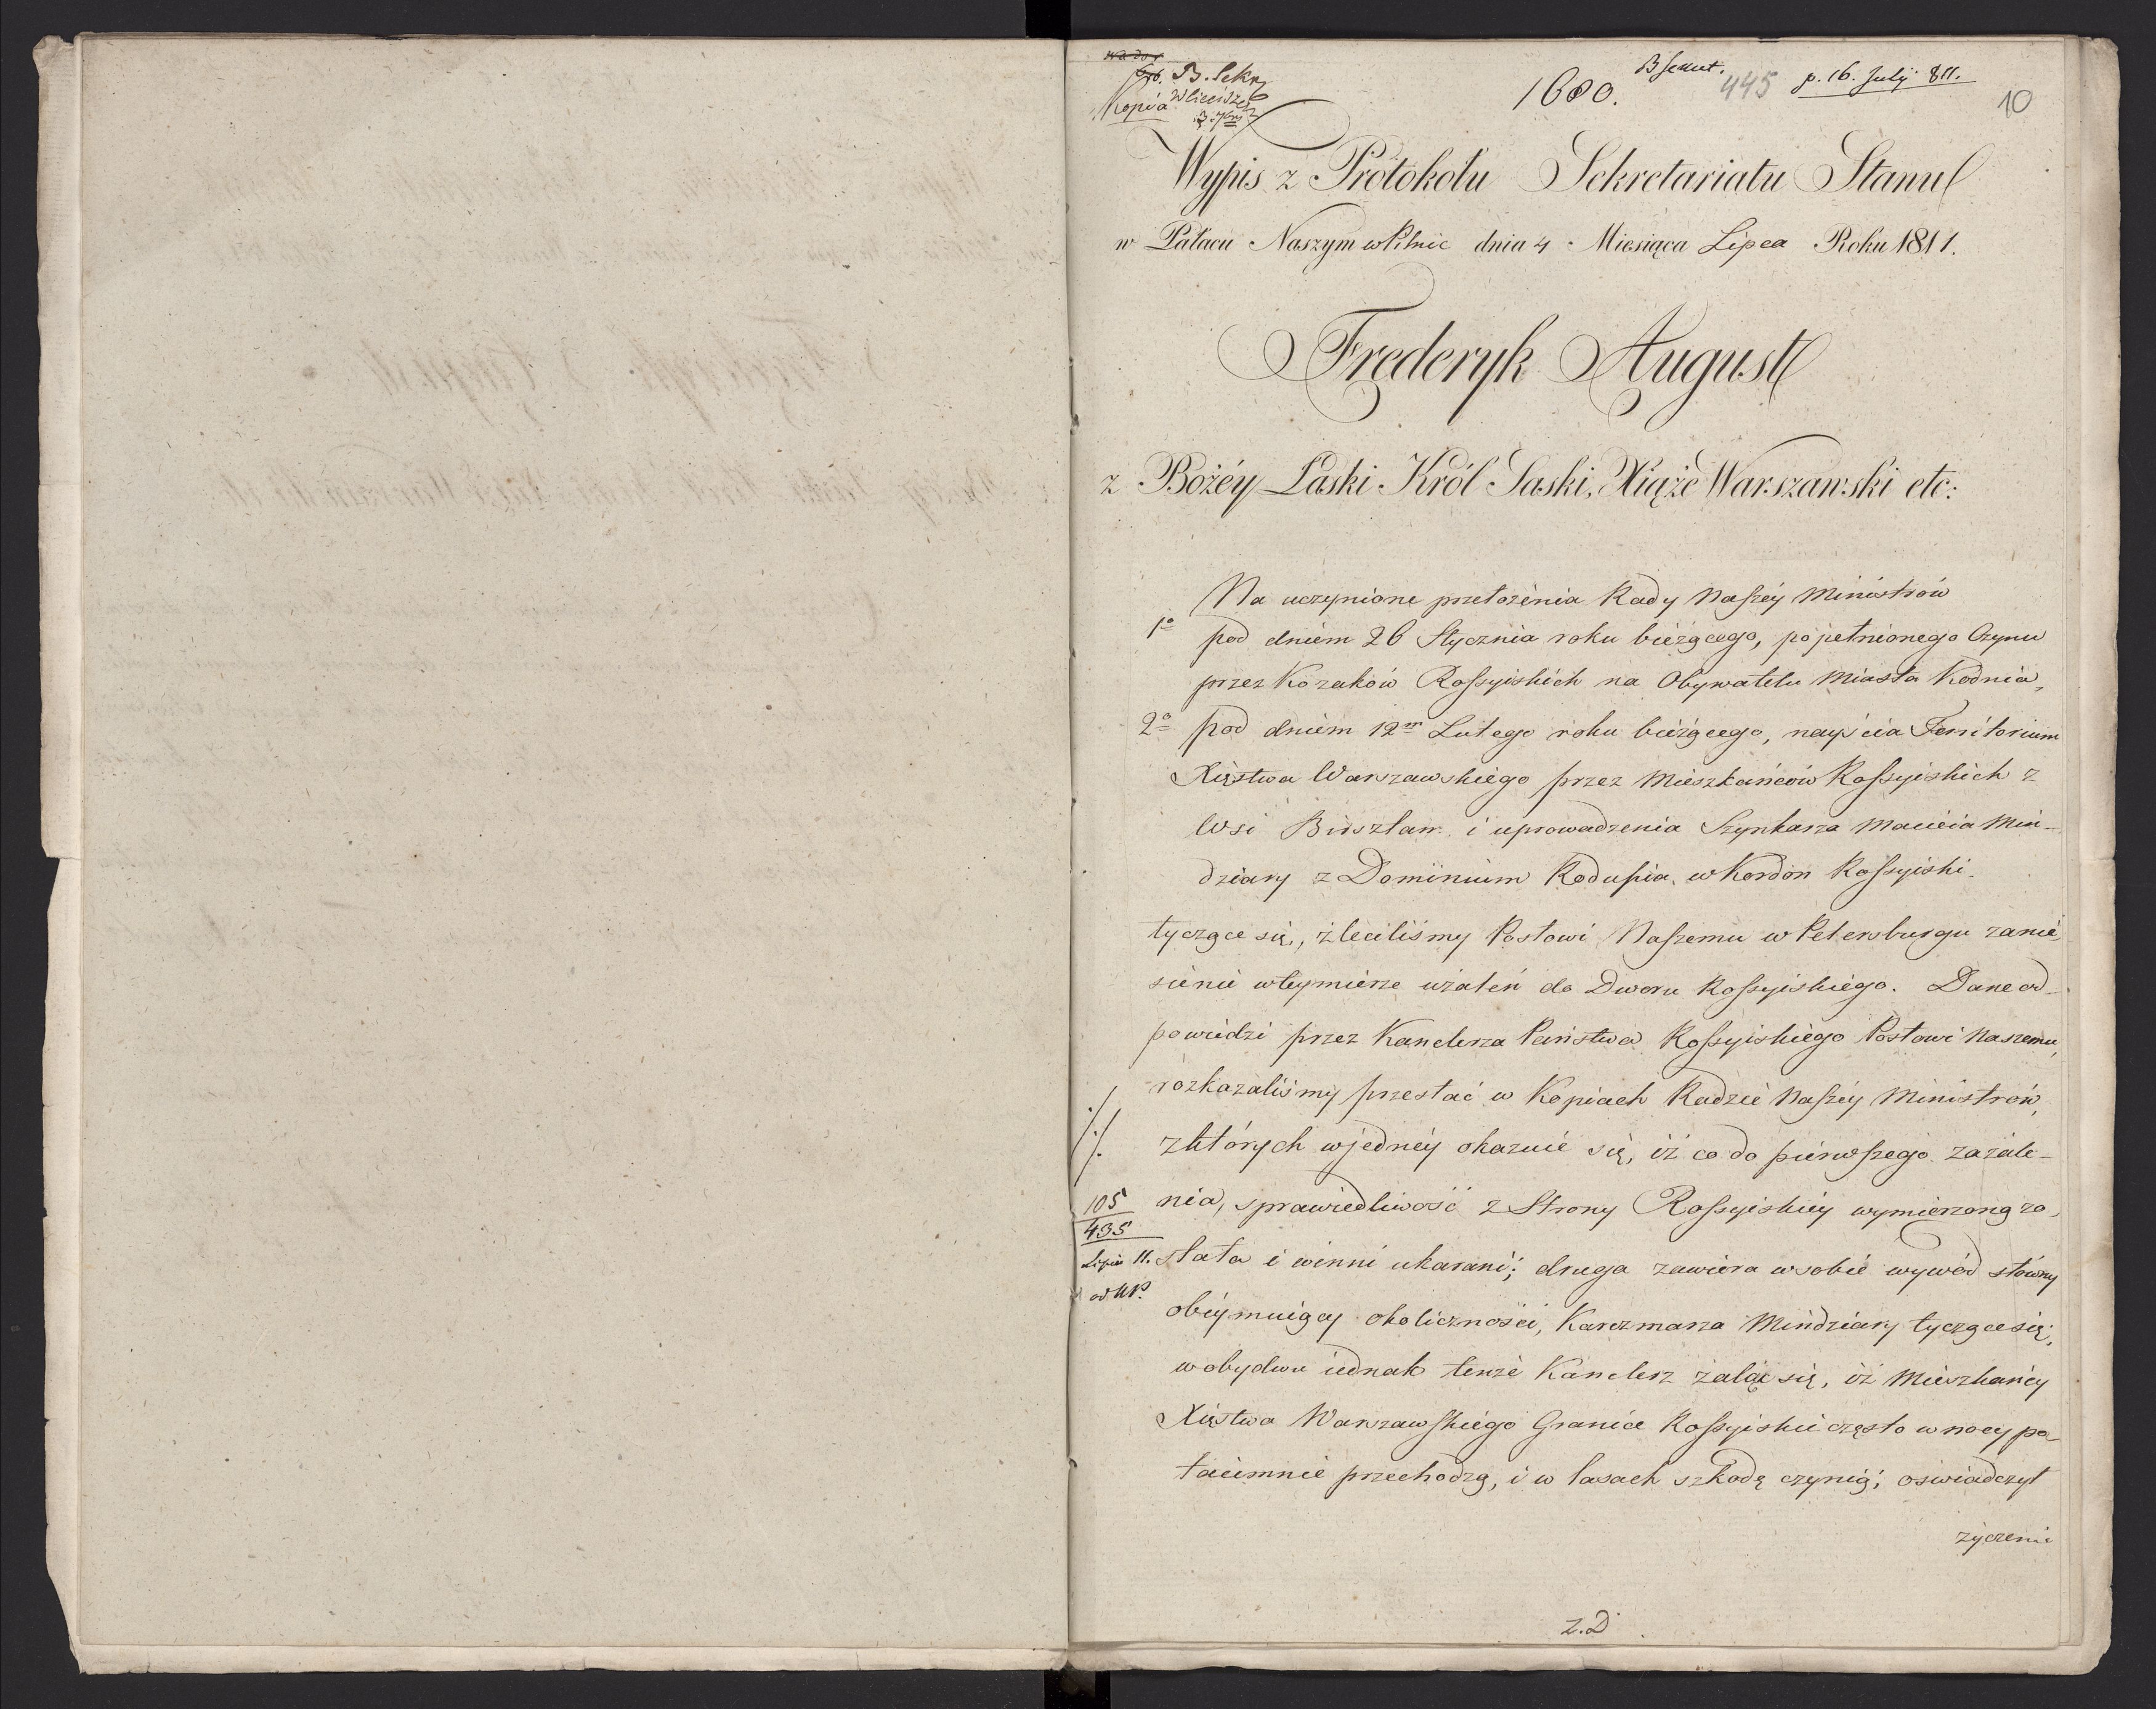 B. Sekr
Kopia
1680.
445
p. 16. July 811.
10
Wypis z Protokołu Sekretariatu Stanu
w Pałacu Naszym w Pilnic dnia 4 Miesiąca Lipca Roku 1811.
Frederyk August
z Bożéy Łaski Król Saski, Xiążę Warszawski etc:
Na uczynione przełożenia Rady Naszéy Ministrów
1º pod dniem 26 Stycznia roku bieżącego, popełnionego Czynu
przez Kozaków Rossyiskich na Obywatelu Miasta Kodnia,
2º pod dniem 12m Lutego roku bieżącego, nayścia Territorium
Xięstwa Warszawskiego przez Mieszkańców Rossyiskich z
Wsi Birsztan i uprowadzenia Szynkarza Macieia Min-
dziary z Dominium Rodupia, w Kordon Rossyiski.
tyczące się, zleciliśmy Posłowi Naszemu w Petersburgu zanie-
sienie w teymierze użaleń do Dworu Rossyiskiego. Dane od-
powiedzi przez Kanclerza Państwa Rossyiskiego Posłowi Naszemu,
rozkazaliśmy przesłać w Kopiach Radzie Naszéy Ministrów,
·/.
·/.
z których w jednéy okazuie się, iż co do pierwszego zażale-
105
435
Lipca 11.
nia, sprawiedliwość z Strony Rossyiskiéy wymierzoną zo-
stała i winni ukarani; druga zawiera w sobie wywód słowny
obéymuiący okoliczności, Karczmarza Mindziary tyczące się,
w obydwu iednak tenże Kanclerz żaląc się, iż Mieszkańcy
Xięstwa Warszawskiego Granice Rossyiskie często w nocy po-
taiemnie przechodzą, i w lasach szkodę czynią; oświadczył
życzenie
z.D